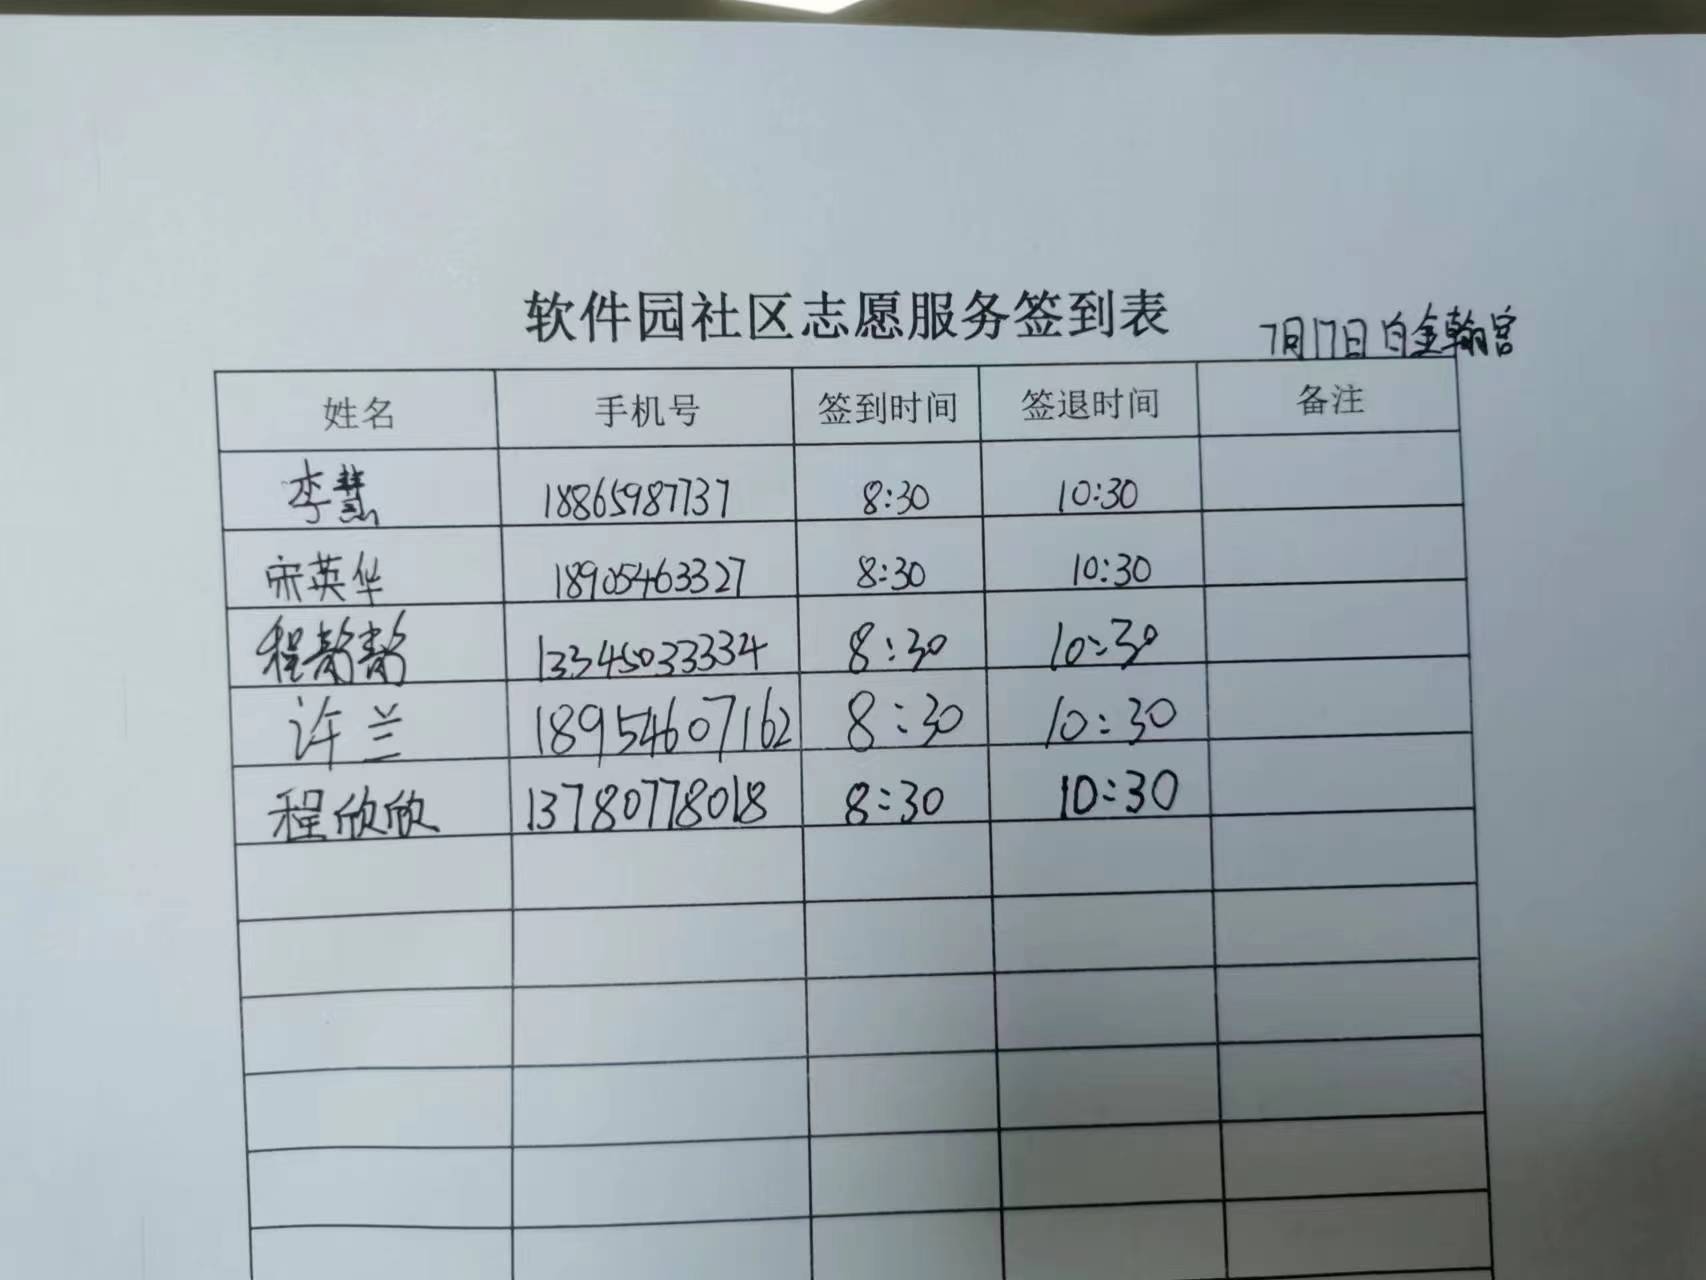 软件园社区志愿服务签到表
7月17日 白金翰宫
姓名 手机号 签到时间 签退时间 备注
李慧 18865987737 8:30 10:30
宋英华 18905463327 8:30 10:30
程静静 13345033334 8:30 10:30
许兰 18954607162 8:30 10:30
程欣欣 13780778018 8:30 10:30